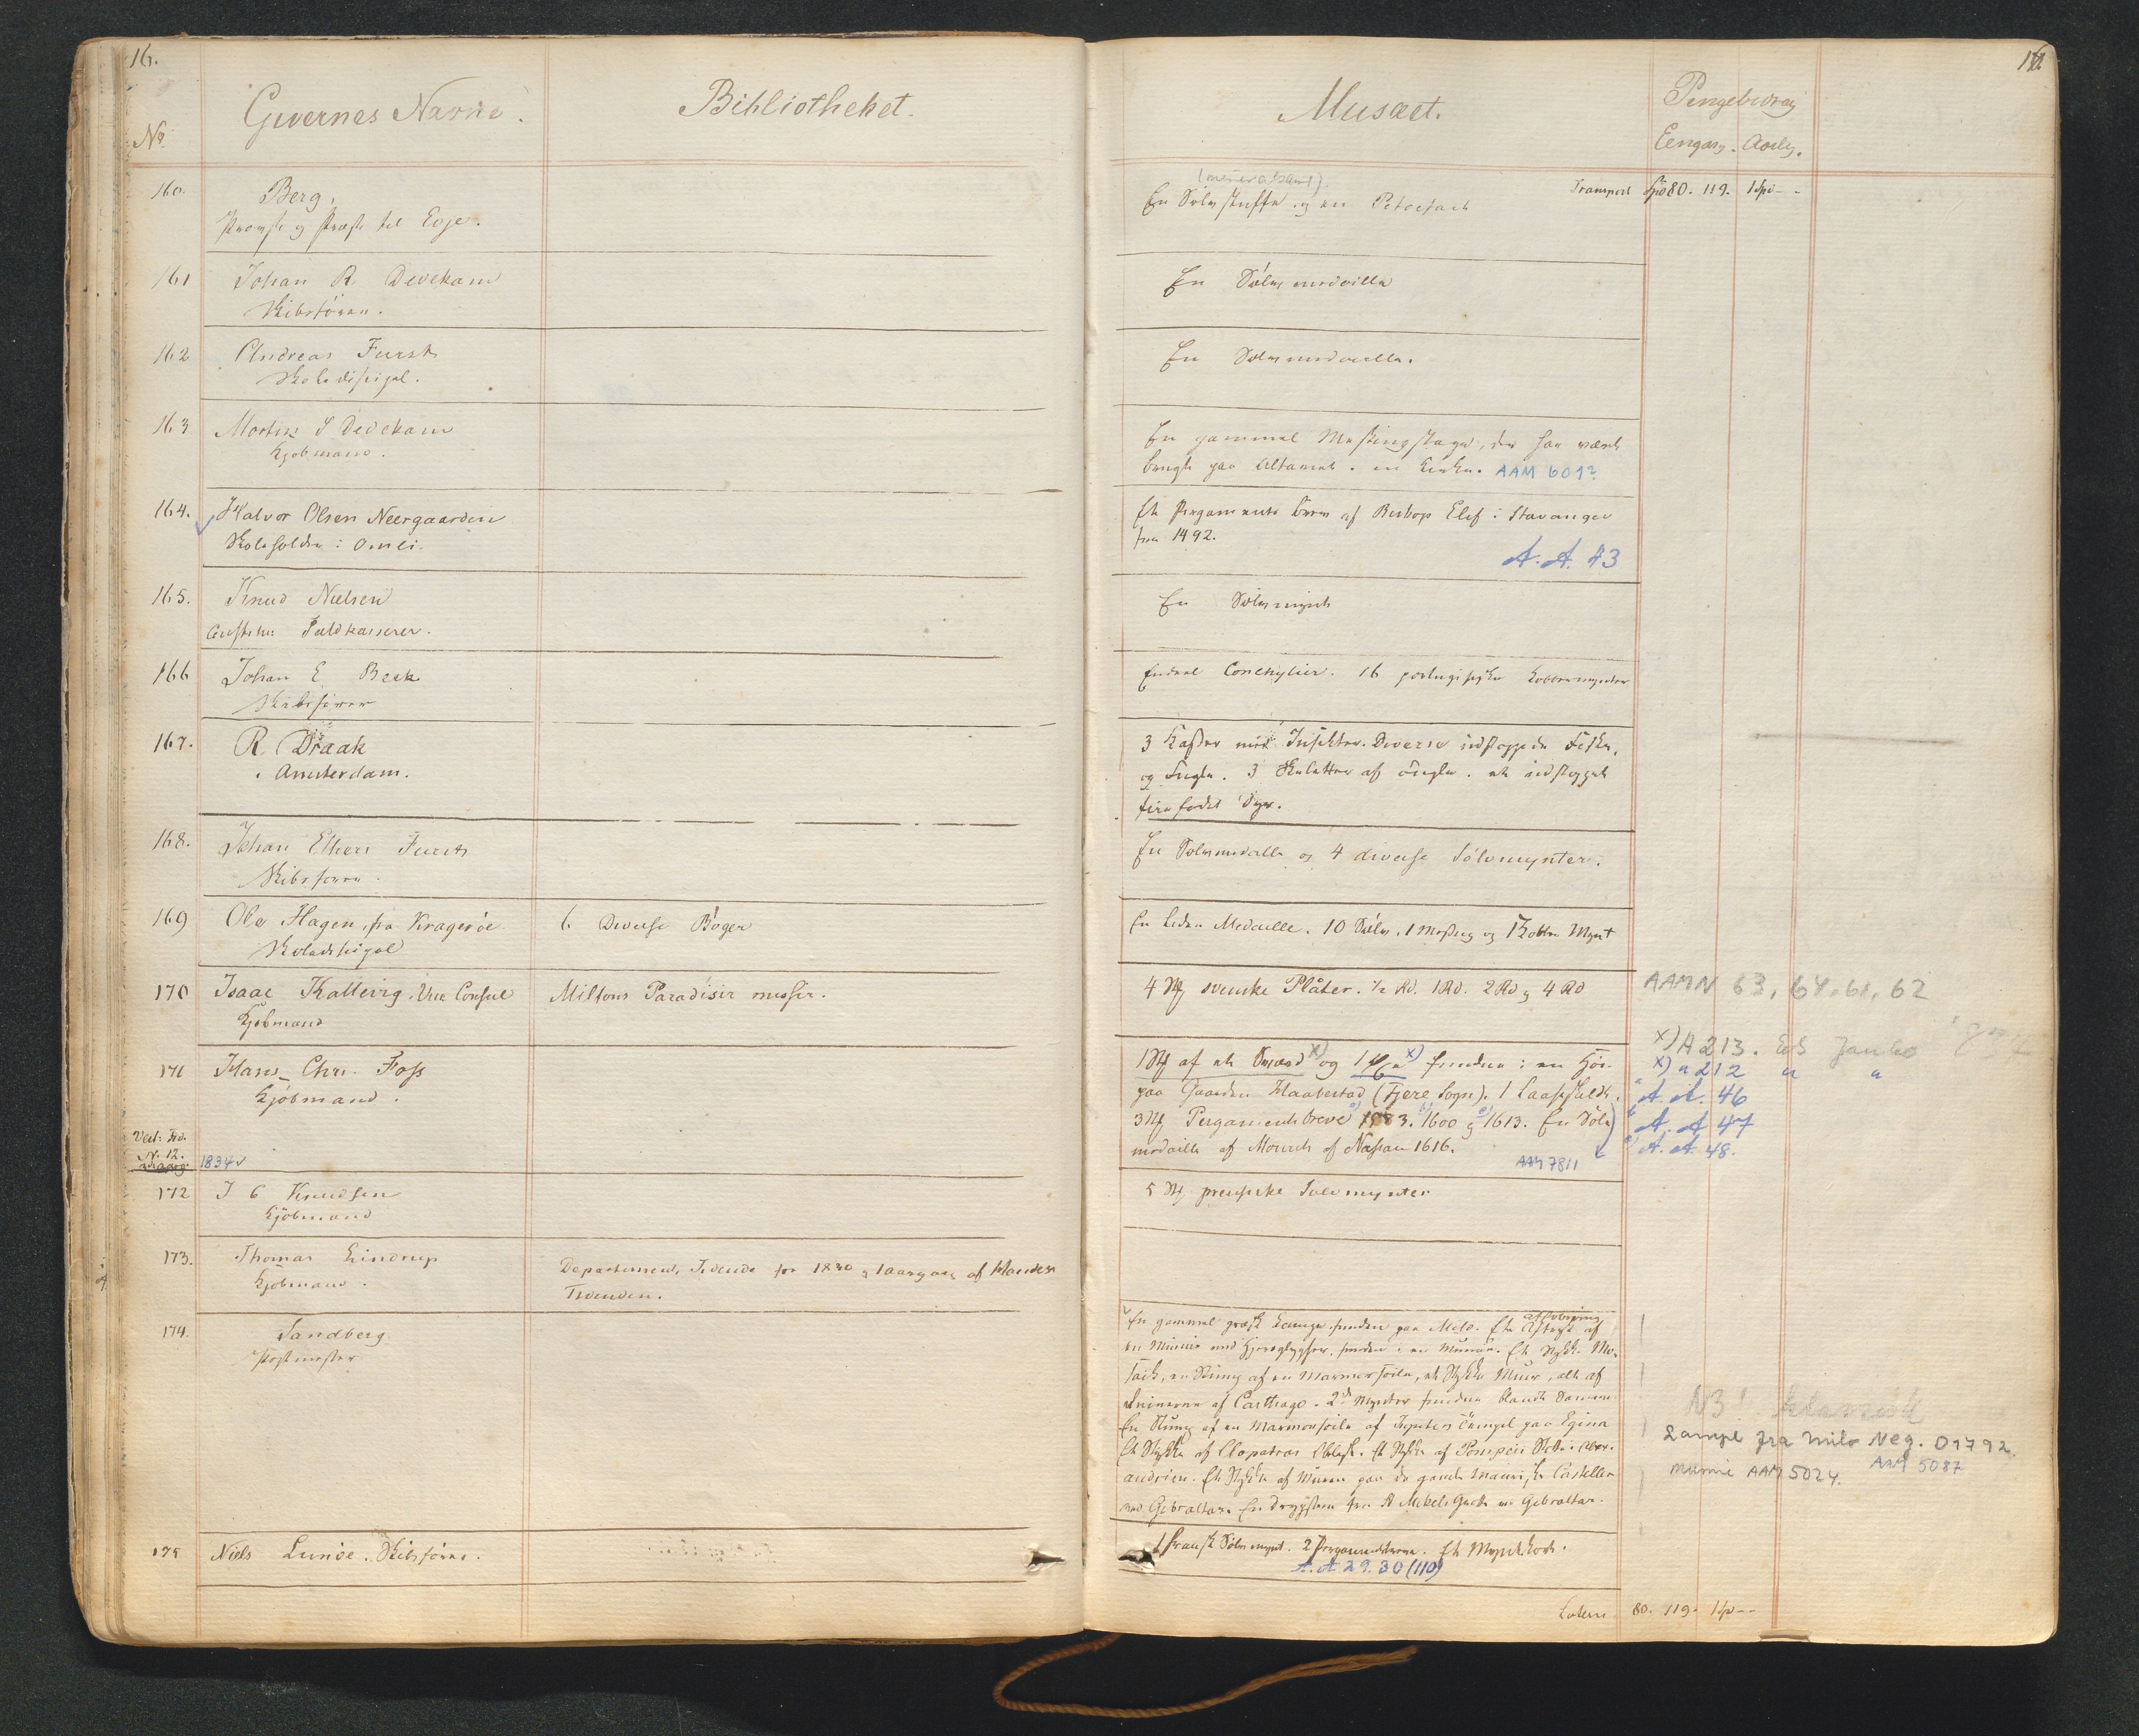 16.
Givernes Navne.
Bibliotheket.
No
160.
Berg,
Provst og Præst til Evje.
161
Johan R. Dedekam
Skibsfører.
162
Andreas Furst
Skoledisipel.
163
Morten S Dedekam
Kjøbmand.
164.
Halvor Olsen Neergaarden
Skoleholder i Omli.
165.
Knud Nielsen
Toldkasserer.
166
Johan E Beck
Skibsfører
167.
R. Draak
i Amsterdam.
168.
Johan Ellers Furst
Skibsfører.
169
Ole Hagen, fra Kragerøe
6. Diverse Bøger
Skoledisipel
170
Isaac Kallevig. Vice Consul
Miltons Paradisir
Kjøbmand
171
Hans Chr. Foss
Kjøbmand.
No. 12.
1834
172
J C Knudsen
Kjøbmand
173.
Thomas Lindrup
Departements Tidende for 1830 1 Aargang af
Kjøbmand.
Tidenden.
174.
Sandberg
Postmester
175
Niels Lunde. Skibsfører.
Musæet.
Pengebidrag
Eengang. Aarlig.
(mineralsaml).
Transport Spd 80. 119. 1 Spd - -
En Sølvstuffe og en Petrefact
En Sølvmedaille
En Sølvmedaille.
En gammel Messingstage, der har været
brugt paa Alteret i en Kirke. AAM 601?
Et Pergaments brev af Biskop Elef i Stavanger
fra 1492.
A.A. 43
En Sølvmynt
Endeel Conchylier. 16 portugisiske Kobbermynter
3 Kasser med Insekter. Diverse udstoppede Fiske,
og Fugle. 3 Skeletter af Fugle. et udstoppet
fire fodet Dyr.
En Sølvmedaille og 4 diverse Sølvmynter.
En Leder Medaille. 10 Sølv, 1 Messing og 1 Kobber Mynt
4 St svenske Plåter. ½ RD. 1 RD. 2 RD og 4 RD
AAMN 63, 64, 61, 62
1 St af et Sværd x) og 1 x) funden i en Høi
x) A 213.
paa Gaarden Haabestad (Fjere Sogn). 1
x) " 212 " "
3 St Pergamentsbreve 1583. 1600 og 1613. En Sølv
A.A. 46
A.A 47
medaille af Moritz af Nassau 1616.
A.A. 48.
AAM 7811
5 St preussiske Sølvmynter
En gammel græsk Lampe, funden paa Milo. Et Aftryk af
afstøbning
en Mumie med Hjeroglypher, funden i en Mumie. Et Stykke Mo-
saik, en Stump af en Marmorsøile, et Stykke Muur, alt af
Ruinerne af Carthago. 2de Mynter fundne blandt Samme
En Stump af en Marmorsøile af Jupiters Tempel paa Egina
Et Stykke af Cleopatras Obelisk. Et Stykke af Pompeii Støtte i Alex-
andrien. Et Stykke af Muren paa det gamle Mauriske Castel
ved Gibraltar. En Drypsteen fra St Mikels Grotte ved Gibraltar.
NB!
Lampe fra Milo Neg. 01792
AAM 5087
mumie AAM 5024.
1 fransk Sølvmynt. 2 Pergamentsbreve. Et Myntskab.
A.A 29. 30 (110)
Latus 80. 119. 1 Spd - -